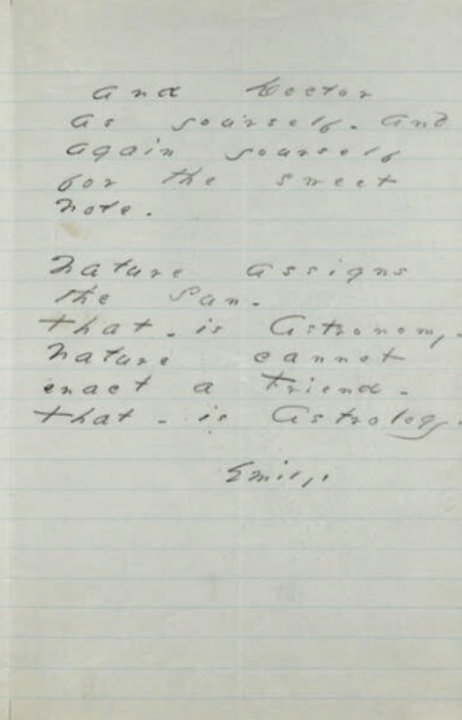 and Doctor
as yourself. And
again yourself
for the sweet
note.
Nature assigns
the Sun -
that - is Astronomy -
Nature cannot
enact a Friend -
that - is Astrology.
Emily.